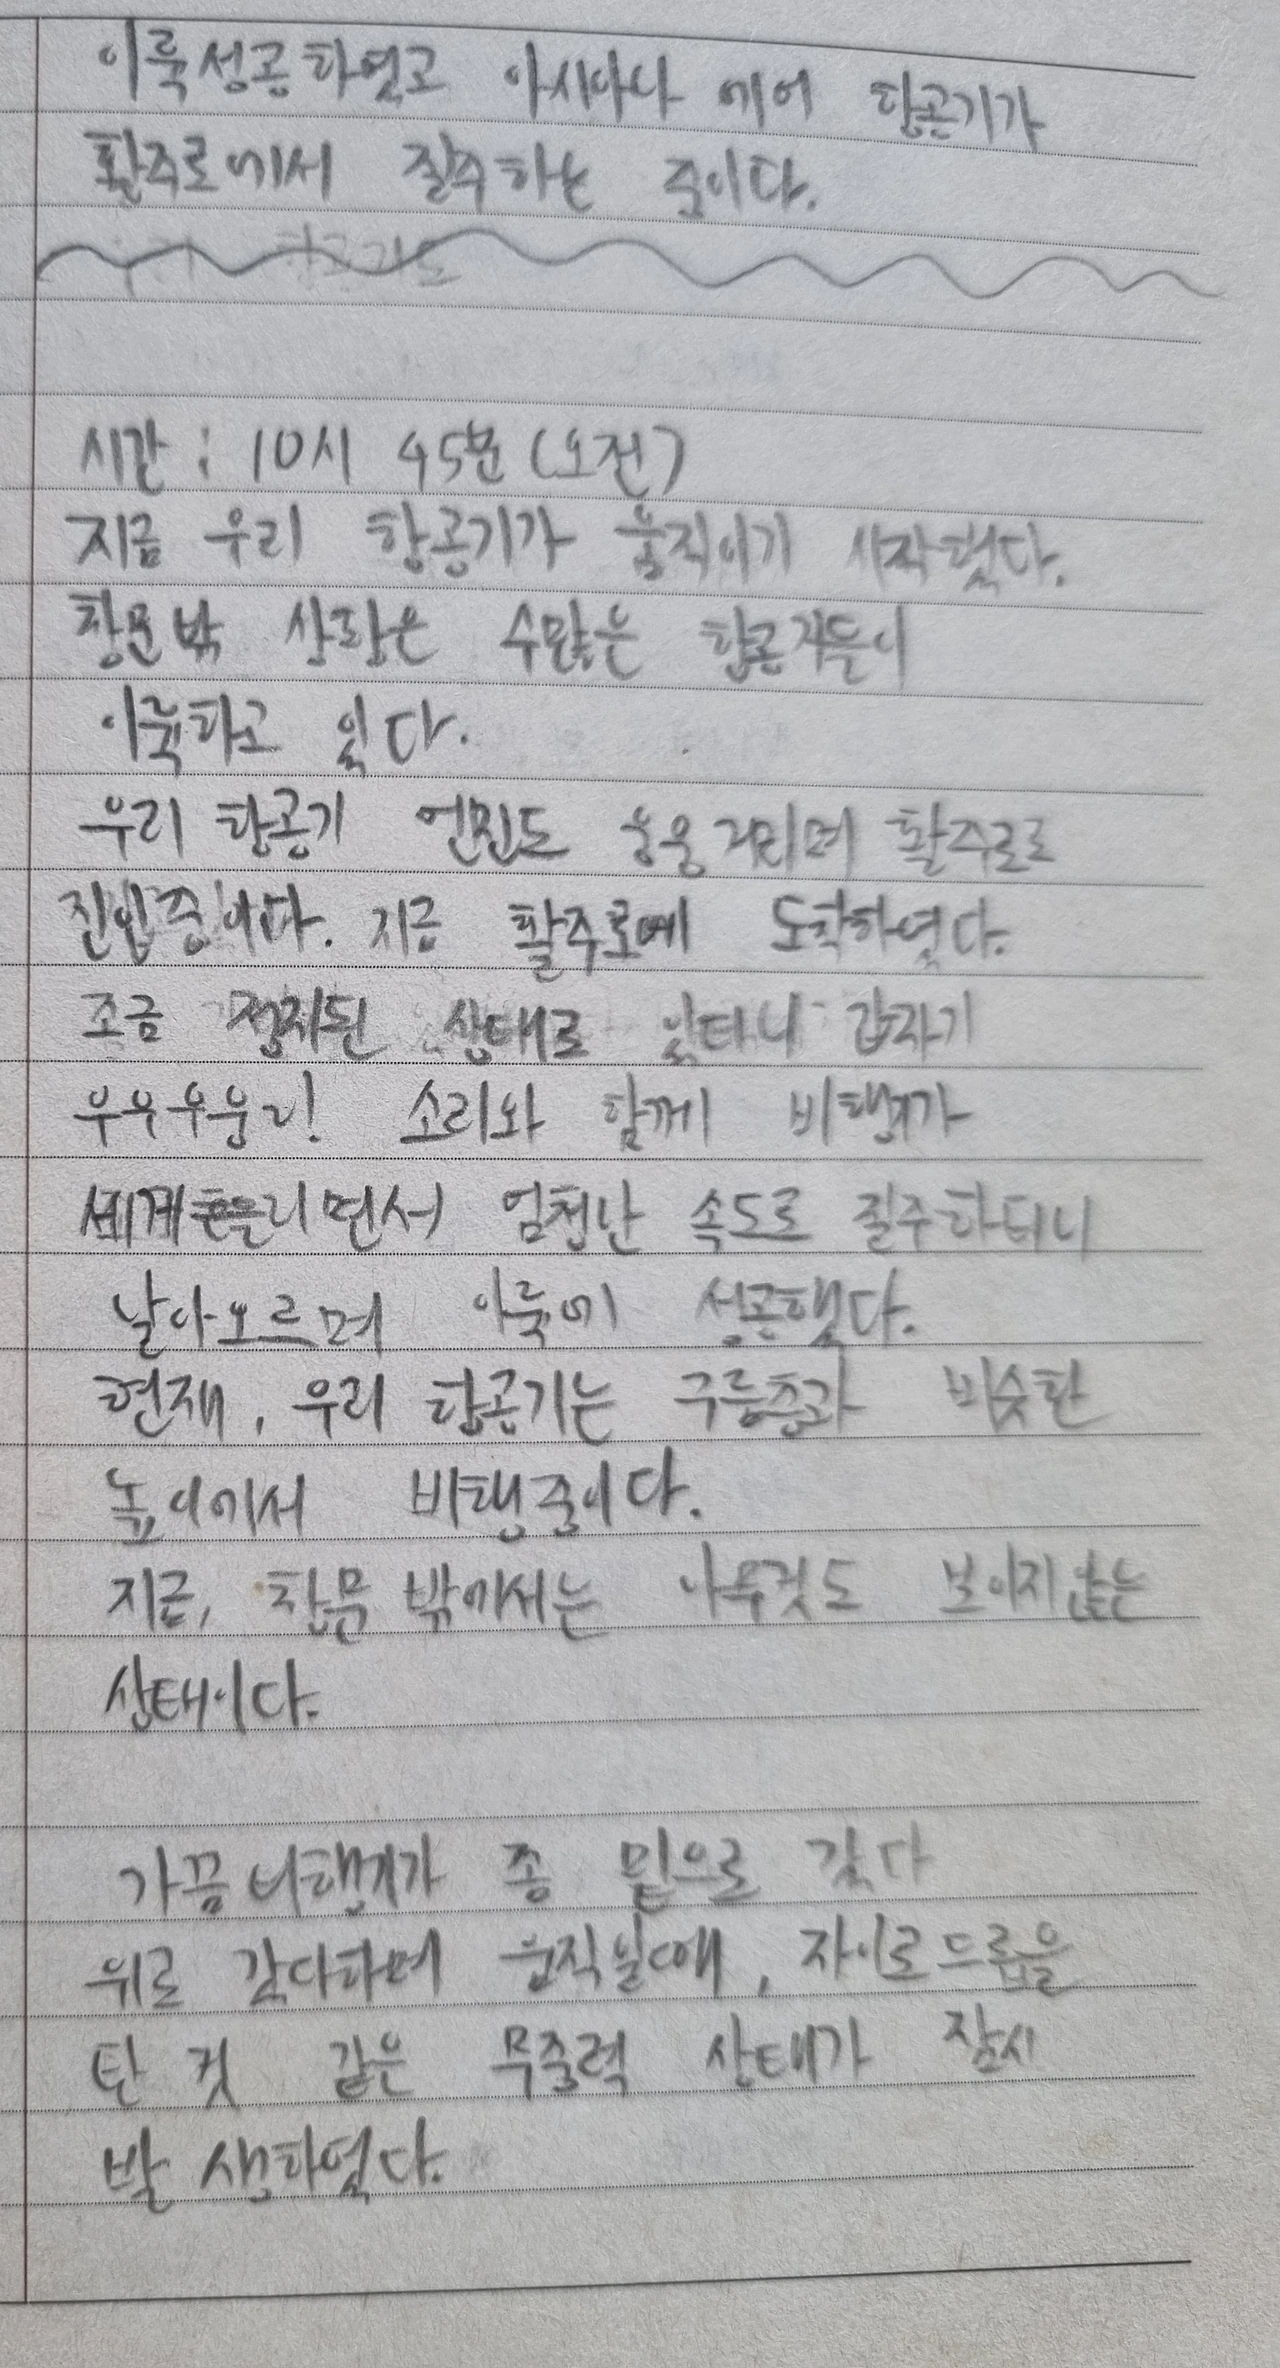 이륙성공하였고 아시아나 에어 항공기가
활주로에서 질주하는 중이다.
시간 : 10시 45분 (오전)
지금 우리 항공기가 움직이기 시작했다.
창문밖 상황은 수많은 항공기들이
이륙하고 있다.
우리 항공기 엔진도 웅웅거리며 활주로로
진입중이다. 지금 활주로에 도착하였다.
조금 정지된 상태로 있더니 갑자기
우우우웅! 소리와 함께 비행기가
세게흔들리면서 엄청난 속도로 질주하더니
날아오르며 이륙에 성공했다.
현재, 우리 항공기는 구름층과 비슷한
높이에서 비행중이다.
지금, 창문 밖에서는 아무것도 보이지않는
상태이다.
가끔비행기가 좀 밑으로 갔다
위로 갔다하며 움직일때, 자이로드롭을
탄 것 같은 무중력 상태가 잠시
발생하였다.